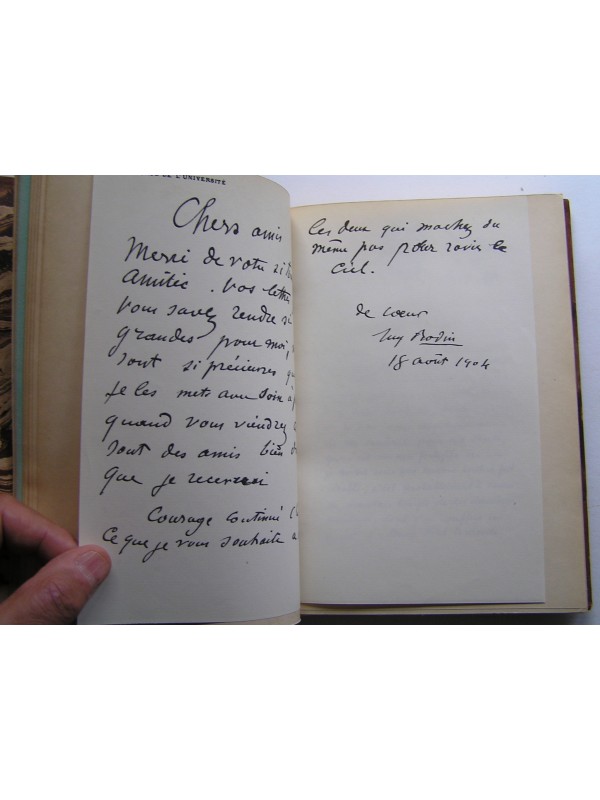 DE L'UNIVERSITÉ
Chers amis
Merci de votre si
Amitié. Vos lettres
vous savez rendre si
grandes pour moi,
sont si précieuses
Je les mets avec soin
quand vous viendrez
sont des amis bien
que je recevrai
Courage continué
Ce que je vous souhaite
les deux qui machez du
même pas pour ravir le
ciel.
de cœur
Rodin
18 août 1904